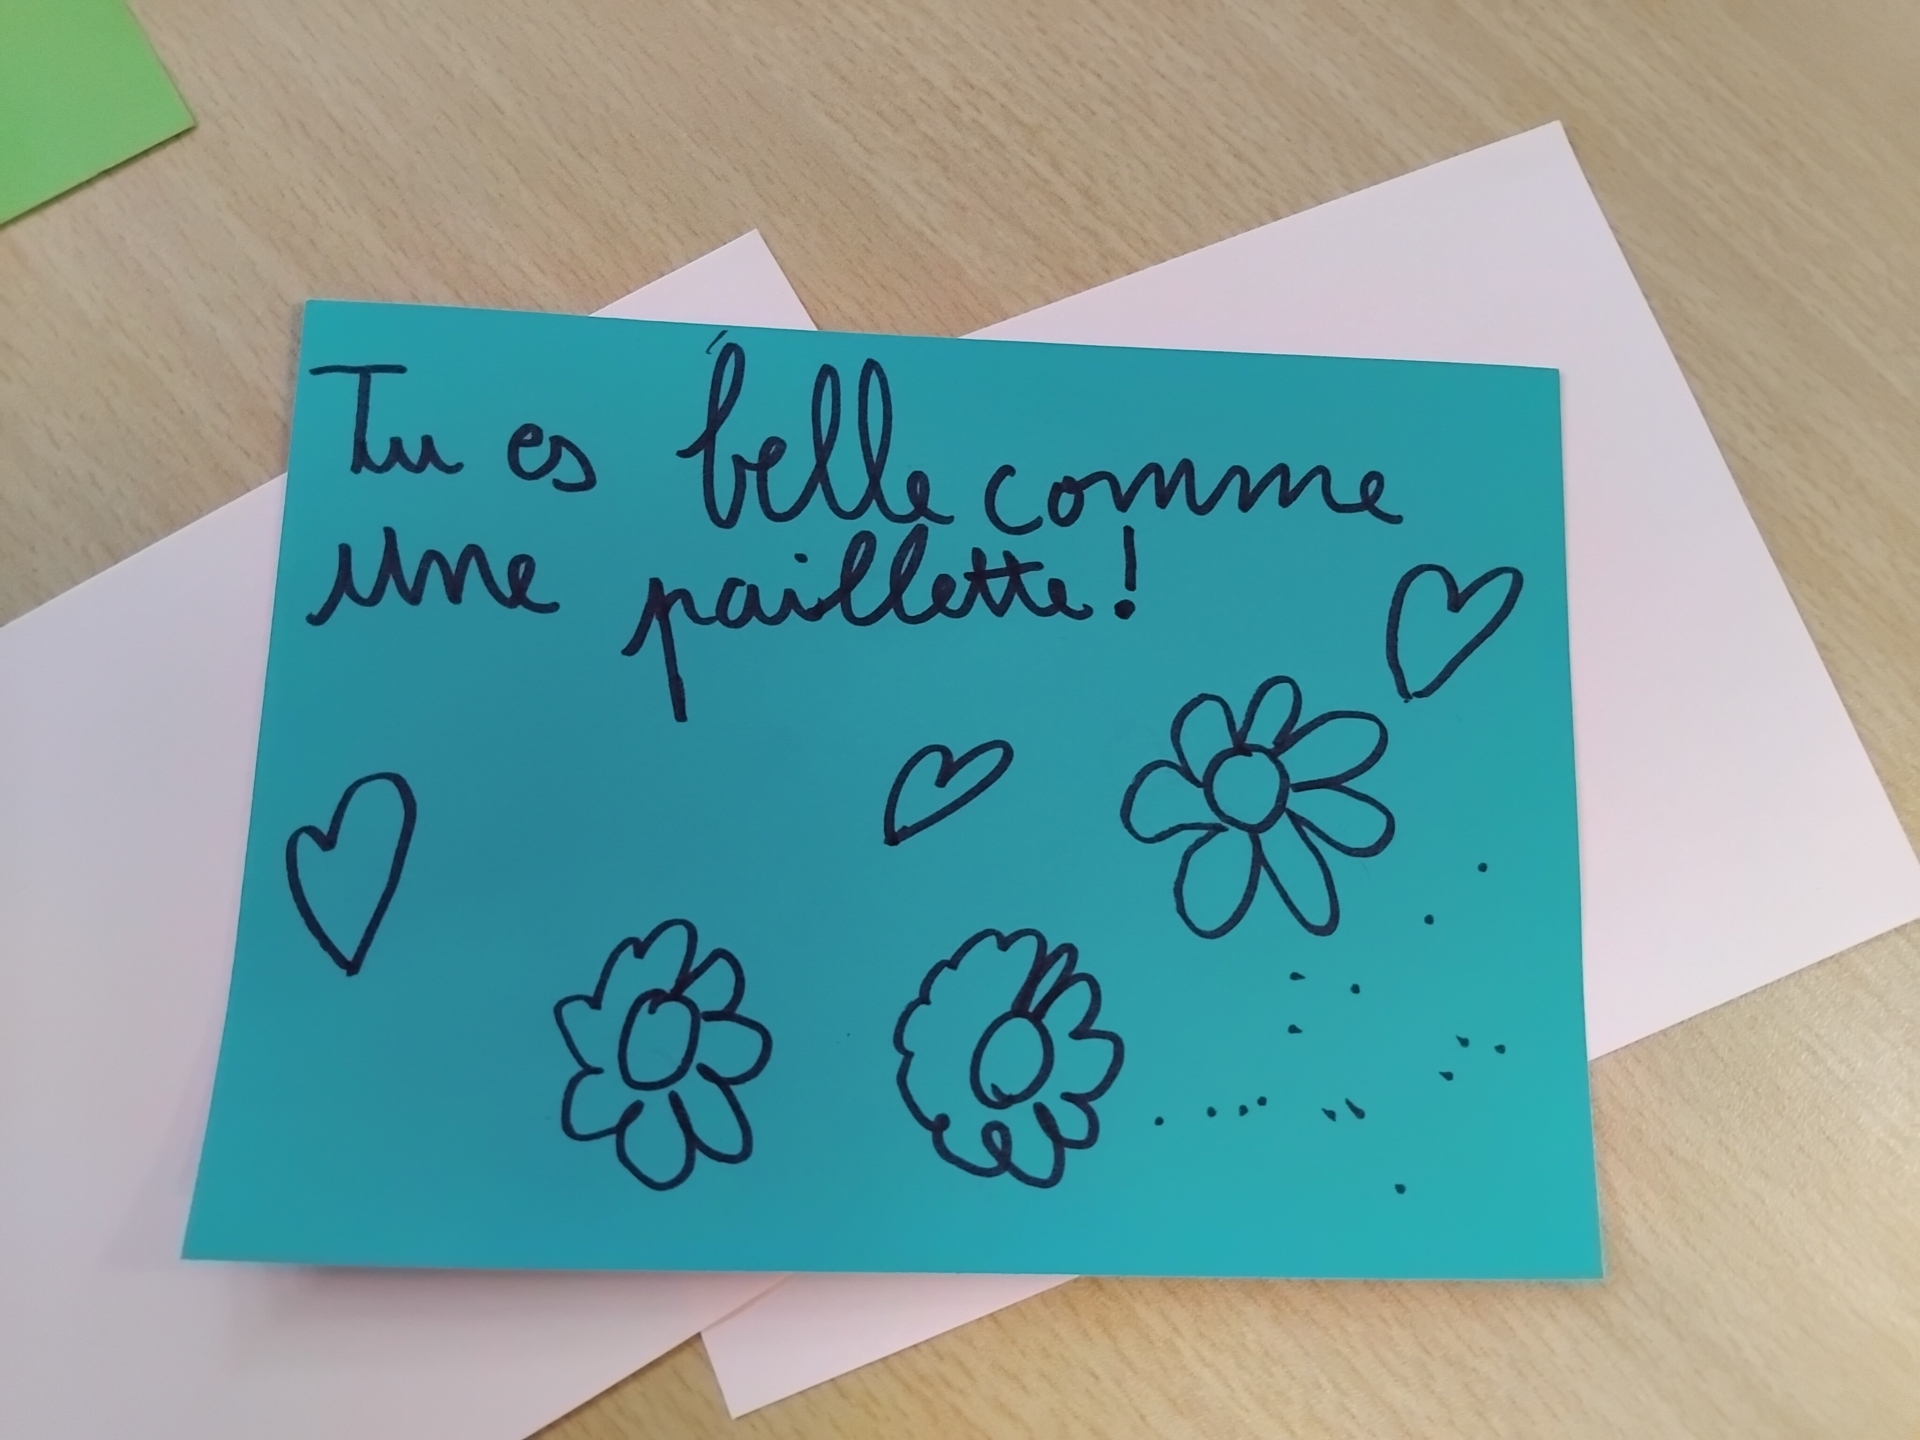 Tu es belle comme
une paillette !